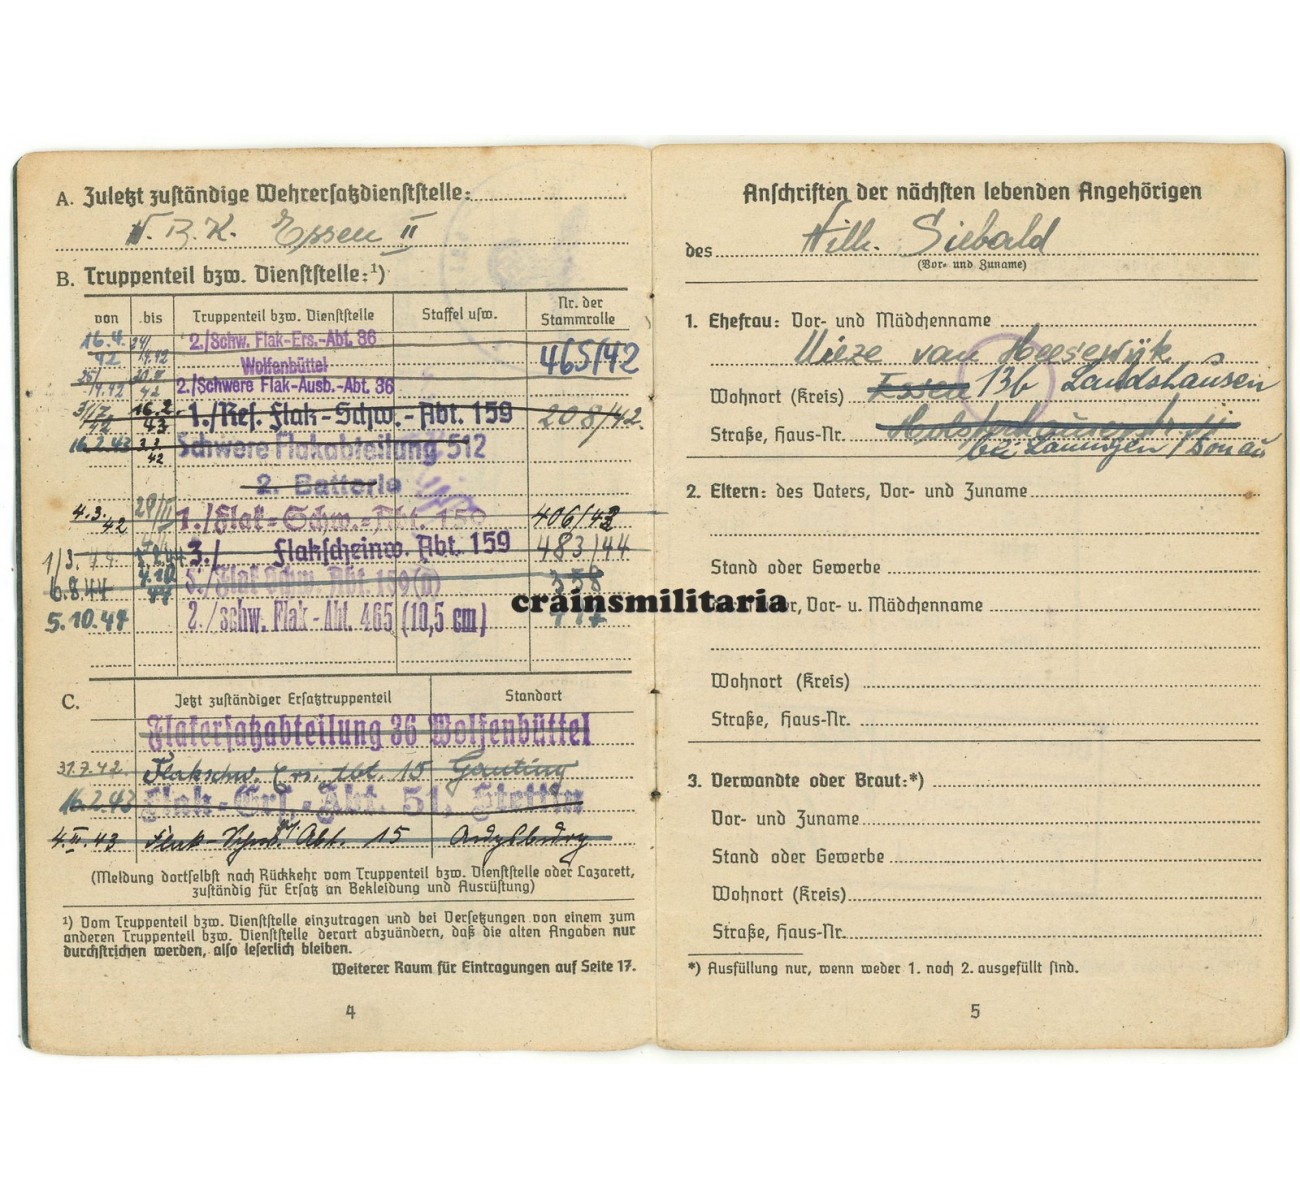 A. Zuletzt zuständige Wehrersatzdienststelle:
W. B. K. Essen II
B. Truppenteil bzw. Dienststelle:¹)
von bis Truppenteil bzw. Dienststelle Staffel usw. Nr. der Stammrolle
16.4. 42 2./Schw. Flak-Ers.-Abt. 36 465/42
Wolfenbüttel
2./Schwere Flak-Ausb.-Abt. 36
16.2. 43 1./Res. Flak-Schw.-Abt 159 208/42.
16.2.43 3.3. 42 Schwere Flakabteilung 512
2. Batterie
4.3. 42 1./Flak-Schw.-Abt. 159 406/43
1/3. 44 3./ Flakscheinw. Abt. 159 483/44
6.8.44 4.10 44 5./Flak-Schw. Abt. 159 358
5.10.44 2./schw. Flak-Abt. 465 (10,5 cm)
C. Jetzt zuständiger Ersatztruppenteil Standort
Flakersatzabteilung 36 Wolfenbüttel
31.7.42. Flakschw. Ers. Abt. 15 Gauting
16.2.43 Flak-Ers.-Abt. 51, Stettin
4.II.43 Flak-Schw. Abt. 15 Augsburg
(Meldung dortselbst nach Rückkehr vom Truppenteil bzw. Dienststelle oder Lazarett,
zuständig für Ersatz an Bekleidung und Ausrüstung)
¹) Vom Truppenteil bzw. Dienststelle einzutragen und bei Versetzungen von einem zum
anderen Truppenteil bzw. Dienststelle derart abzuändern, daß die alten Angaben nur
durchstrichen werden, also leserlich bleiben.
Weiterer Raum für Eintragungen auf Seite 17.
4
Anschriften der nächsten lebenden Angehörigen
des Wilh. Siebald
(Vor- und Zuname)
1. Ehefrau: Vor- und Mädchenname
Mieze van Heesewijk
Wohnort (Kreis) Essen 13b Landshausen
Straße, Haus-Nr.
bei Lauingen/Donau
2. Eltern: des Vaters, Vor- und Zuname
Stand oder Gewerbe
crainsmilitaria
Vor- u. Mädchenname
Wohnort (Kreis)
Straße, Haus-Nr.
3. Verwandte oder Braut:*)
Vor- und Zuname
Stand oder Gewerbe
Wohnort (Kreis)
Straße, Haus-Nr.
*) Ausfüllung nur, wenn weder 1. noch 2. ausgefüllt sind.
5